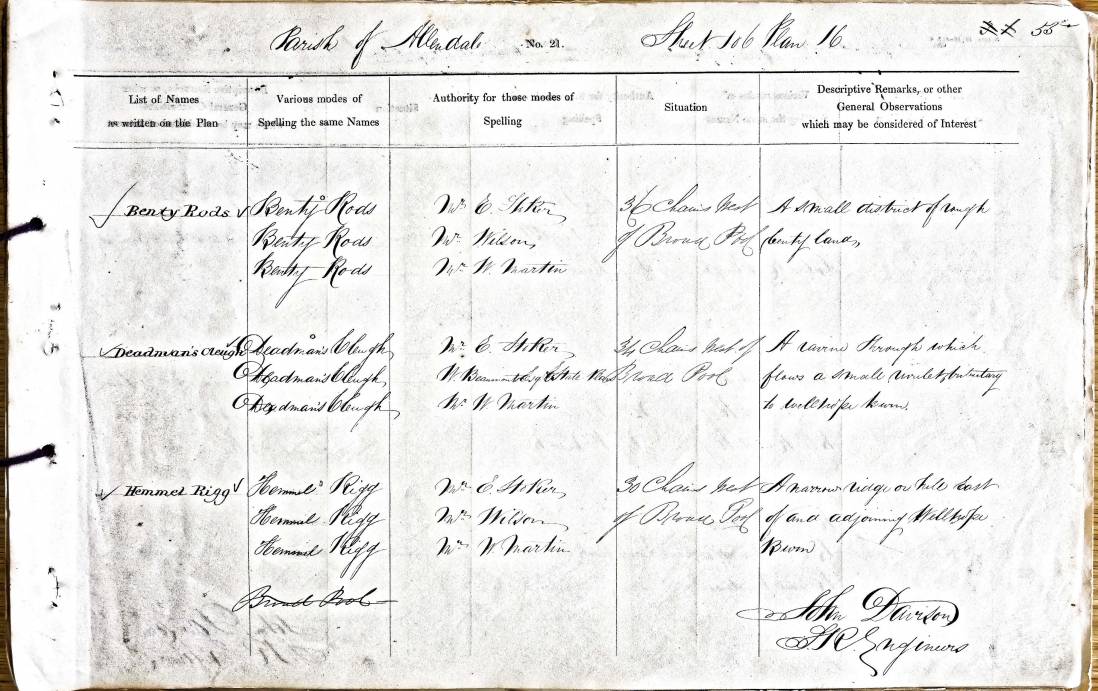 Parish of Allendale No. 21. Sheet 106 Plan 16. 53
List of Names as written on the Plan
Various modes of Spelling the same Names
Authority for those modes of Spelling
Situation
Descriptive Remarks, or other General Observations which may be considered of Interest
Benty Rods Benty Rods Mr. E. Stoker 36 Chains West A small district of rough
Benty Rods Mr. Wilson of Broad Pool benty land,
Benty Rods Mr. W. Martin
Deadman's Cleugh Deadman's Cleugh Mr. E. Stoker 34 Chains West of A ravine through which
Deadman's Cleugh W. Beaumont Esqr. Estate Broad Pool flows a small rivulet tributary
Deadman's Cleugh Mr. W. Martin to Wellhope Burn.
Hemmel Rigg Hemmel Rigg Mr. E. Stoker 30 Chains West A narrow ridge or hill East
Hemmel Rigg Mr. Wilson of Broad Pool of and adjoining Wellhope
Hemmel Rigg Mr. W. Martin Burn
Broad Pool
John Davison
S.R. Engineers